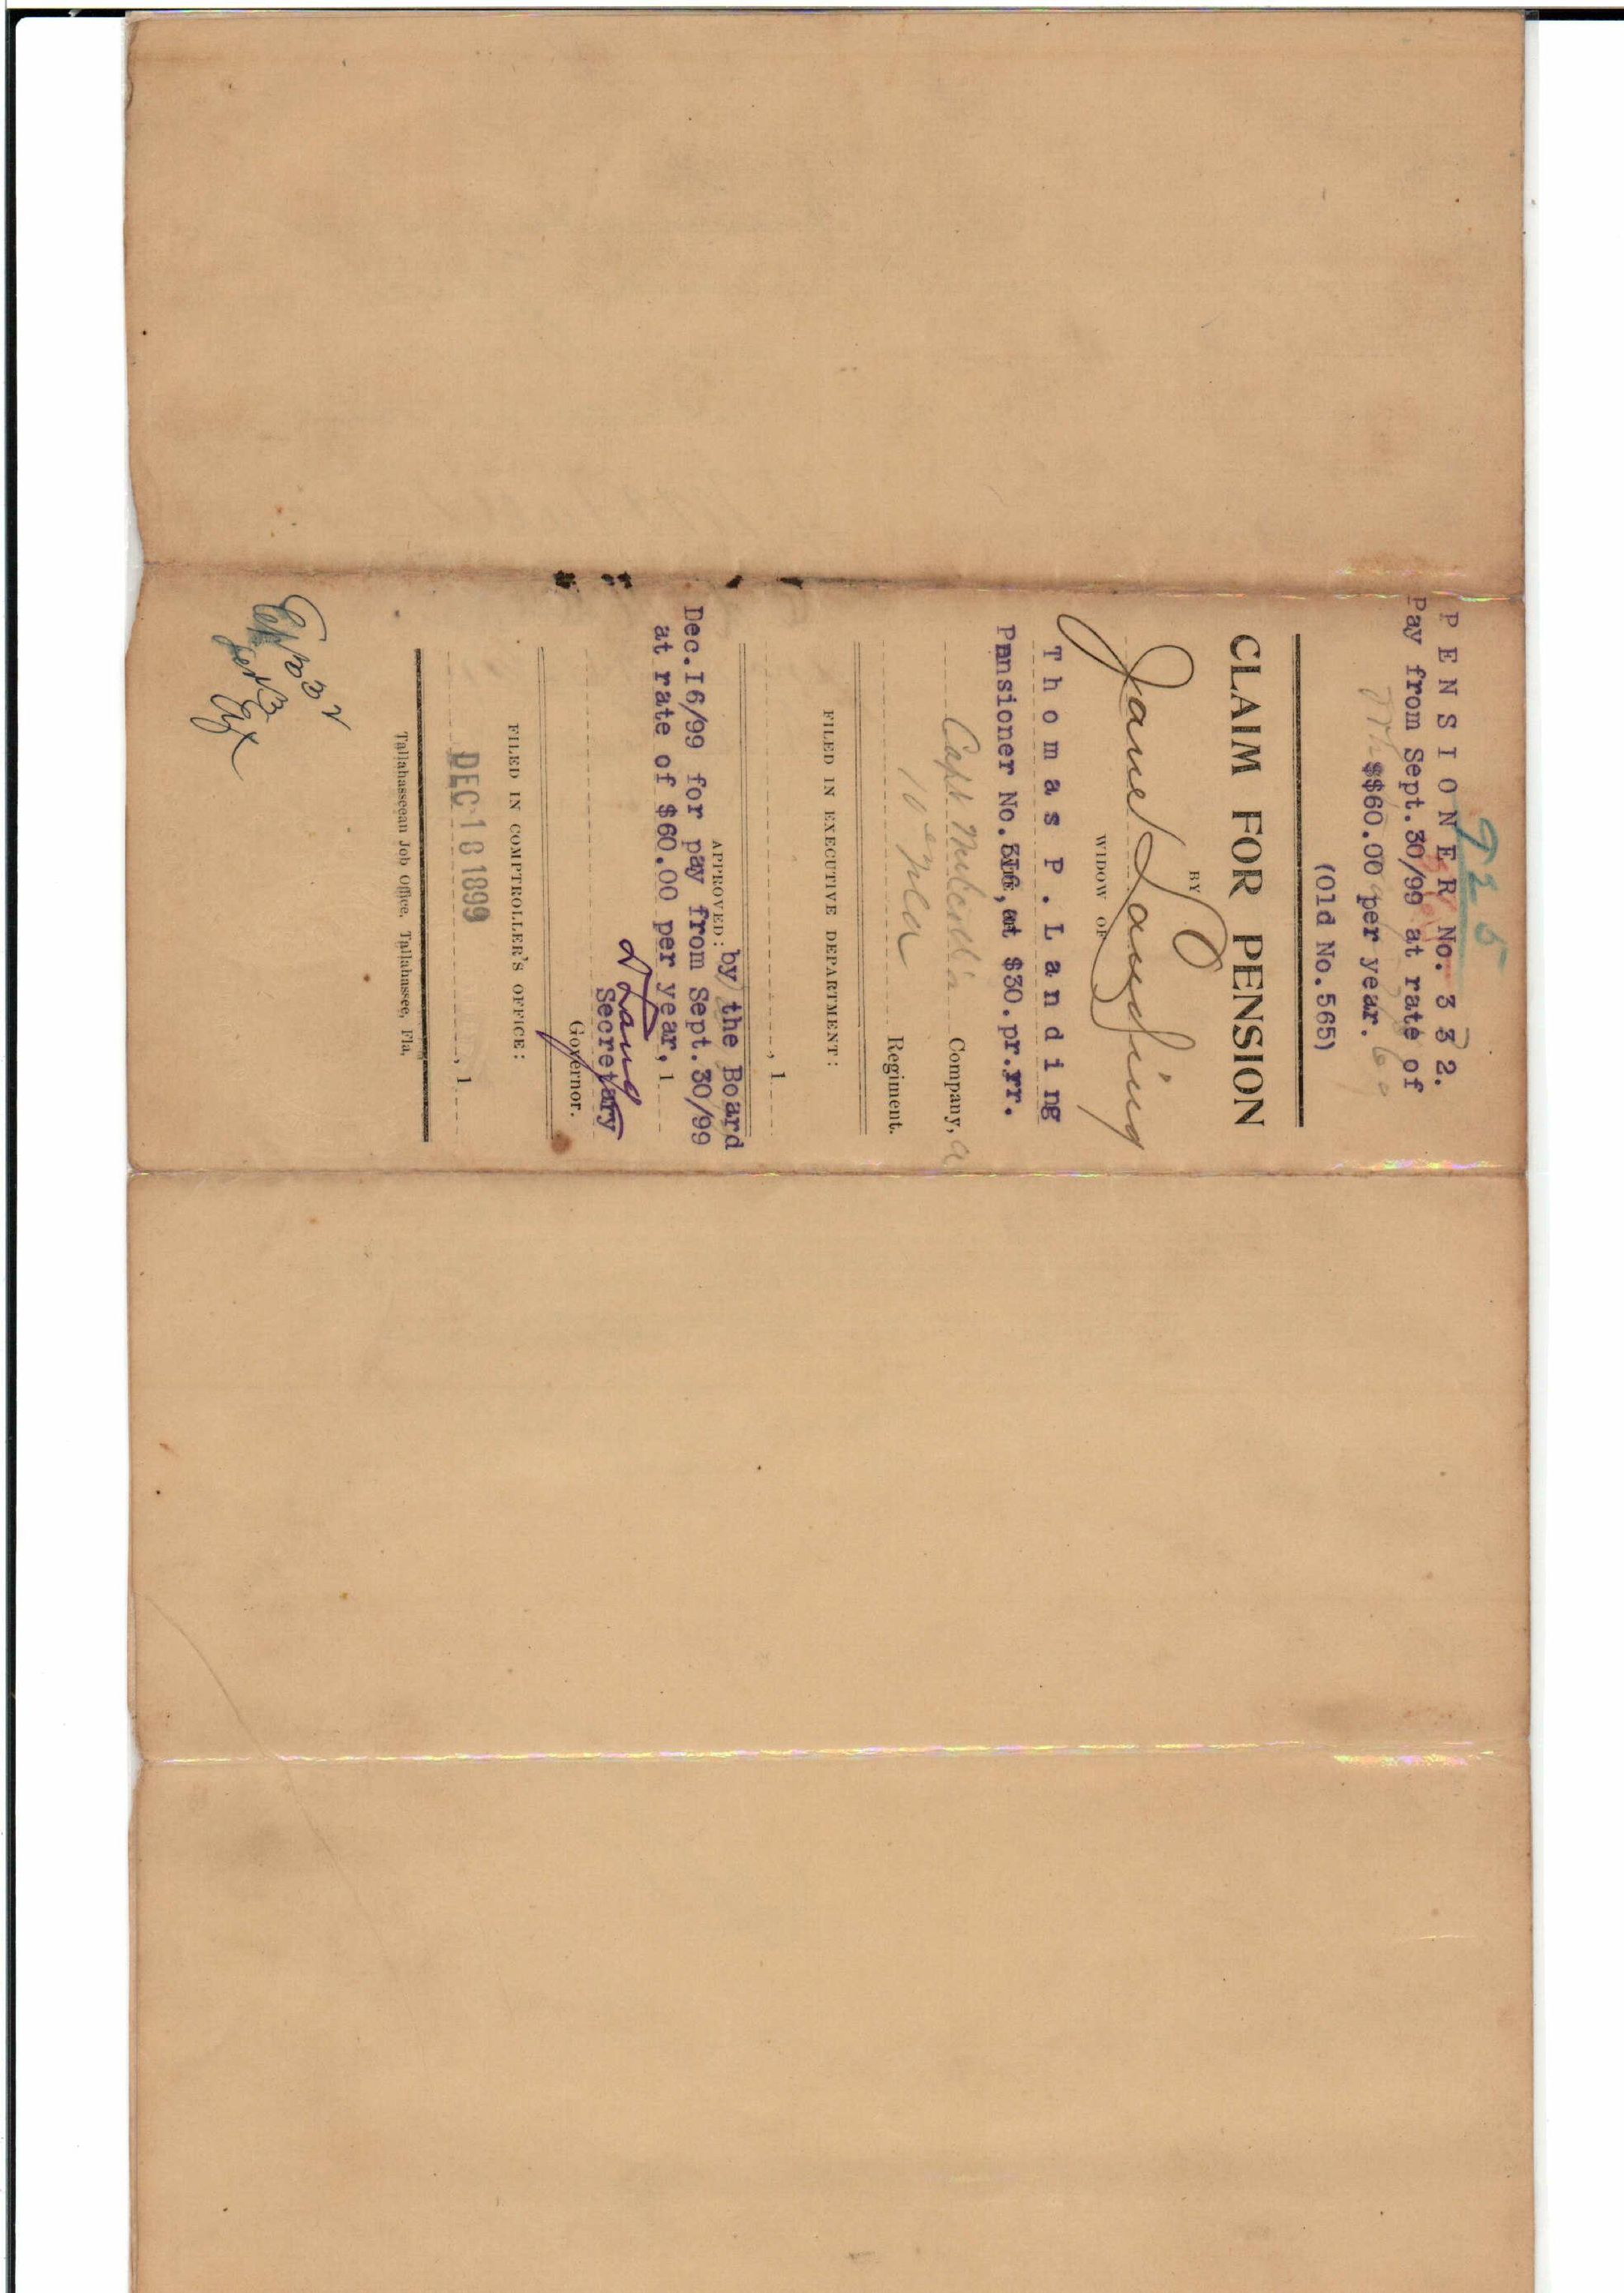 925
PENSIONER No. 332.
Pay from Sept.30/99 at rate of
$$60.00 per year.
(Old No.565)
CLAIM FOR PENSION
BY
Jane Landing
WIDOW OF
Thomas P. Landing
Pensioner No.316, at $30.pr.yr.
Capt Company, a
10 Regiment.
FILED IN EXECUTIVE DEPARTMENT:
, 1
APPROVED: by the Board
Dec.16/99 for pay from Sept.30/99
at rate of $60.00 per year, 1
D Lang
Secretary
Governor.
FILED IN COMPTROLLER'S OFFICE:
DEC 18 1899
, 1
Tallahasseean Job Office, Tallahassee, Fla.